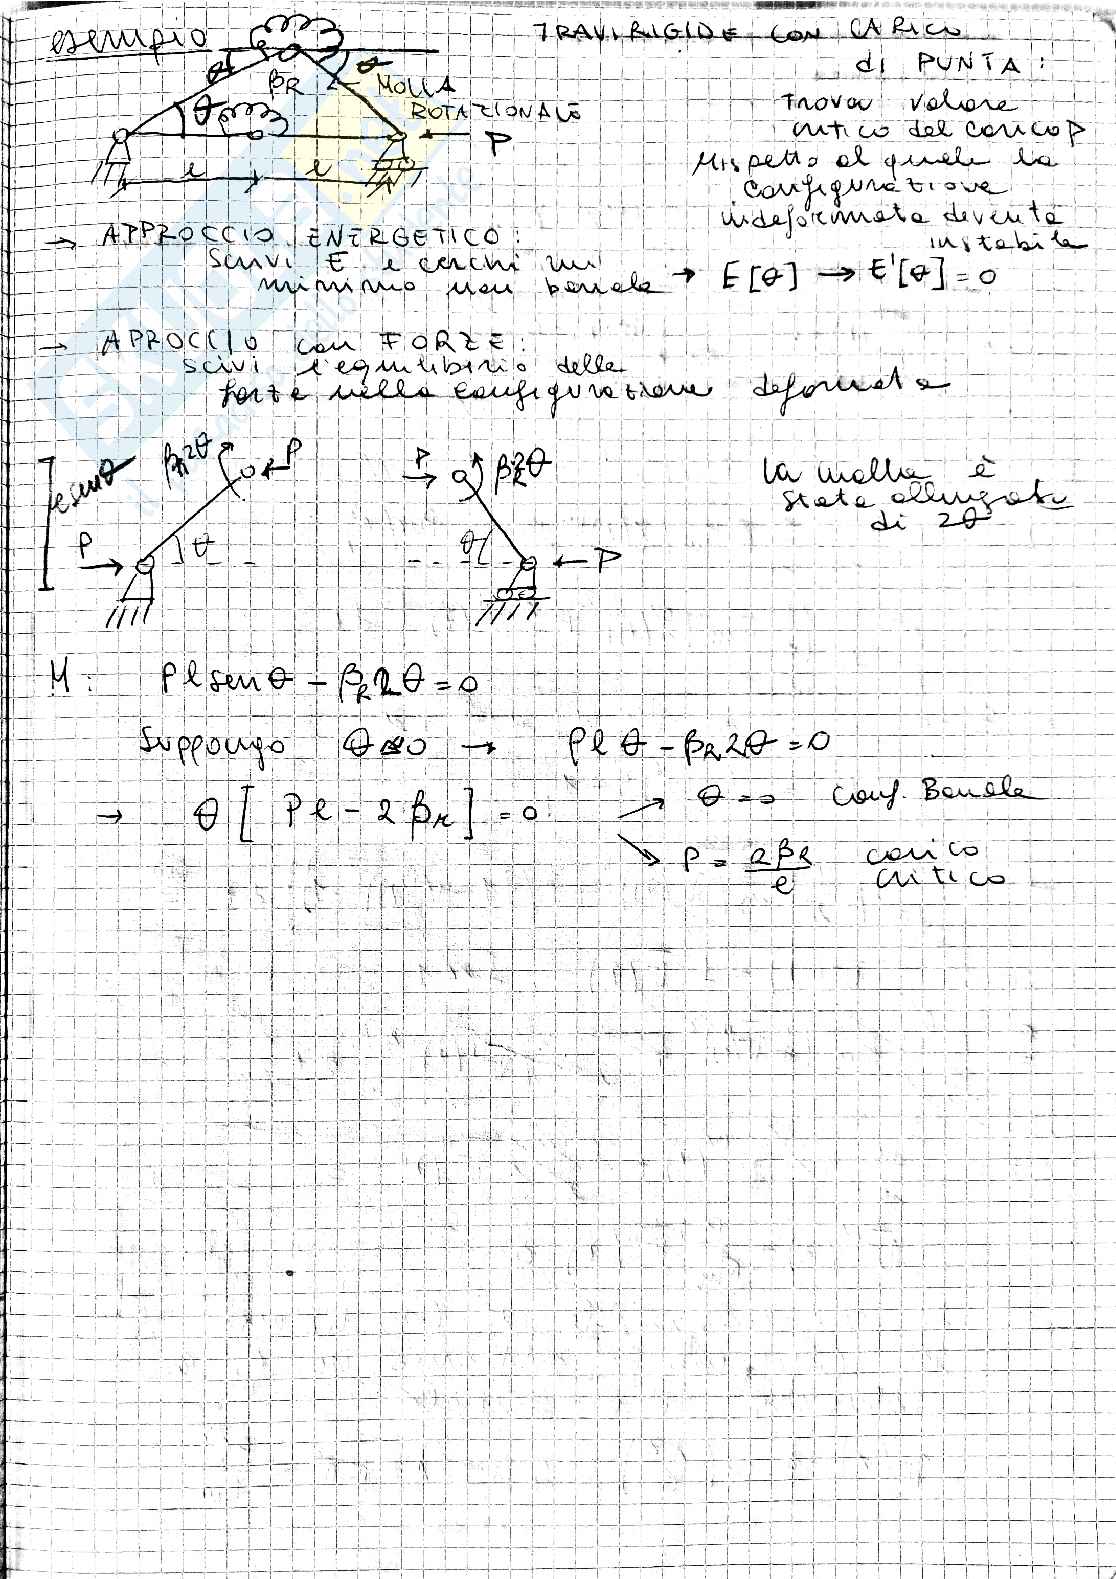 esempio
TRAVI RIGIDE CON CARICO
di PUNTA:
θ
θ
βR
MOLLA
ROTAZIONALE
θ
P
l
l
trova valore
critico del carico P
rispetto al quale la
configurazione
indeformata diventa
instabile
→ APPROCCIO ENERGETICO:
scrivi E e cerchi un
minimo non banale → E[θ] → E'[θ] = 0
→ APROCCIO con FORZE:
scivi l'equilibrio delle
forze nella configurazione deformata
l senθ
βR2θ
P
P
θ
P
βR2θ
θ
P
la molla è
stata allungata
di 2θ
M: Pl senθ - βR2θ = 0
Suppongo θ≈0 → Plθ - βR2θ = 0
→ θ[Pl - 2βR] = 0
θ = 0 conf. Banale
P = 2βR/l carico
critico